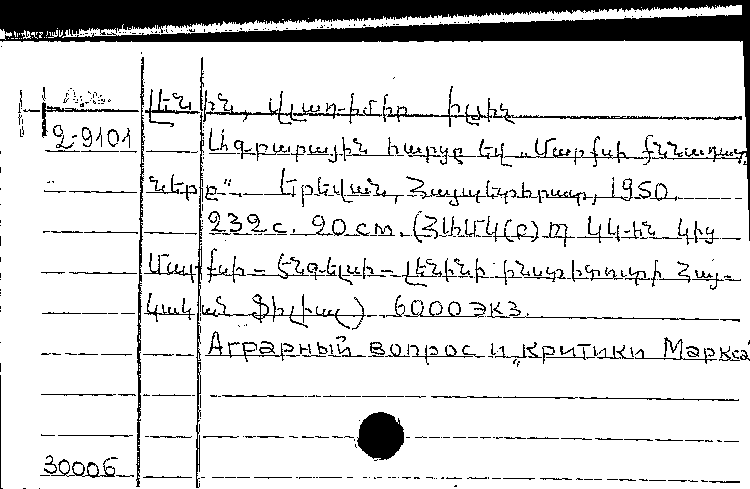 Լենին, Վլադիմիր Իլյիչ
2-9101 Ագրարային հարցը եվ „Մարքսի քննադատ
ները“. Երեվան, Հայպետհրատ, 1950.
232 с. 20 см. (ՀԱՄԿ(բ)Պ ԿԿ-ին կից
Մարքսի – Էնգելսի – Լենինի ինստիտուտի Հայ-
կական Ֆիլիալ) 6000 экз.
Аграрный вопрос и „критики Маркса“
30006